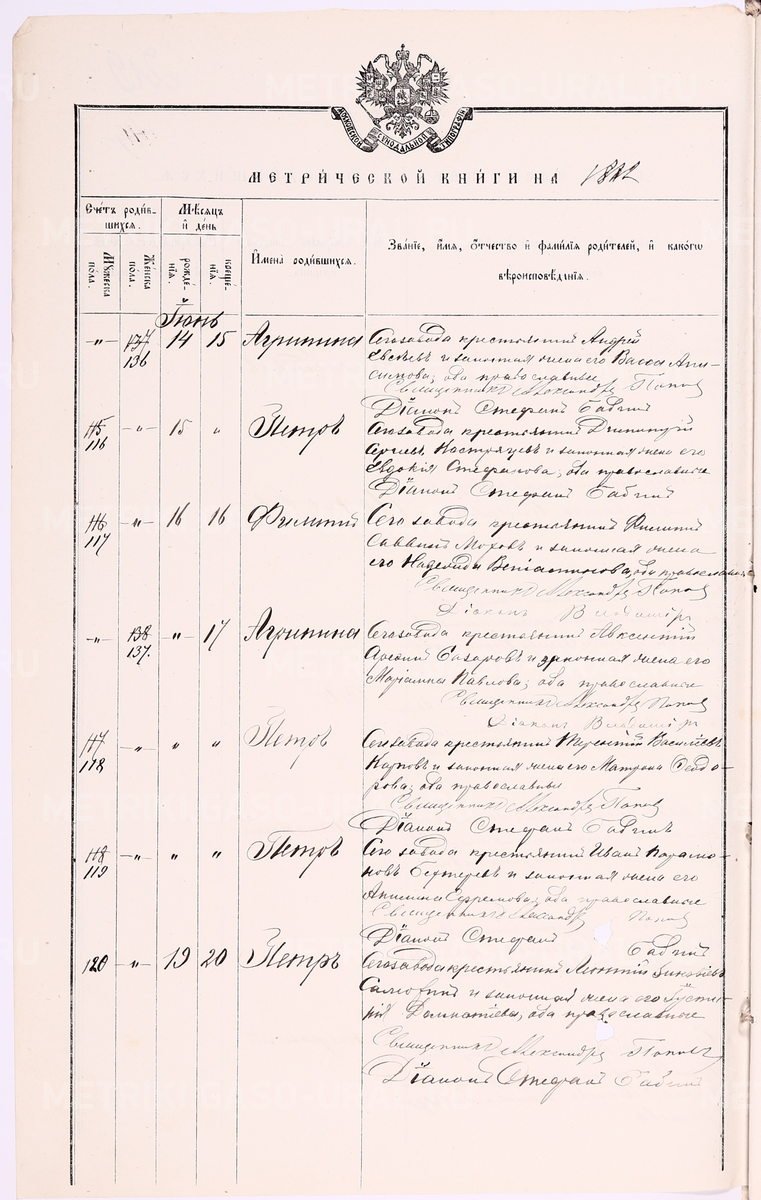 МОСКОВСКОЙ СѴНОДАЛЬНОЙ ТИПОГРАФІИ
МЕТРИ́ЧЕСКОЙ КНИ́ГИ НА 1882
Сче́тъ роди́в-
шихся.
Мꙋ́жеска
пола.
Же́нска
пола.
Мѣ́сяцъ
и҆ де́нь
рожде́-
нїя.
креще́-
нїя.
И҆мена̀ роди́вшихся.
Зва́нїе, и҆́мя, ѻ҆́тчество и҆ фами́лїя роди́телей, и҆ како́гѡ
вѣроисповѣ́данїя.
Іюнь
-"- 137 14 15 Агрипина Сего завода крестьянинъ Андрей
136 и законная жена его Васса Ани-
симова, оба православные
Священникъ Александръ Поповъ
Діаконъ Стефанъ Бабинъ
115 -"- 15 " Петръ Сего завода крестьянинъ Димитрій
116 Сергѣевъ и законная жена его
Евдокія Стефанова, оба православные
Діаконъ Стефанъ Бабинъ
116 -"- 16 16 Филиппъ Сего завода крестьянинъ Филиппъ
117 Моховъ и законная жена
его Надежда оба православные
Священникъ Александръ Поповъ
Діаконъ
-"- 138 -"- 17 Агрипина Сего завода крестьянинъ Авксентій
137. Азаровъ и законная жена его
Маріамна Павлова, оба православные
Священникъ Александръ Поповъ
Діаконъ
117 -"- " " Петръ Сего завода крестьянинъ Терентій Васильевъ
118 Карповъ и законная жена его Матрона Ѳеодо-
рова, оба православные
Священникъ Александръ Поповъ
Діаконъ Стефанъ Бабинъ
118 -"- " " Петръ Сего завода крестьянинъ Иванъ
119 и законная жена его
Акилина Ефремова, оба православные
Священникъ Александръ Поповъ
Діаконъ Стефанъ Бабинъ
120 -"- 19 20 Петръ Сего завода крестьянинъ Леонтій
и законная жена его
оба православные
Священникъ Александръ Поповъ
Діаконъ Стефанъ Бабинъ